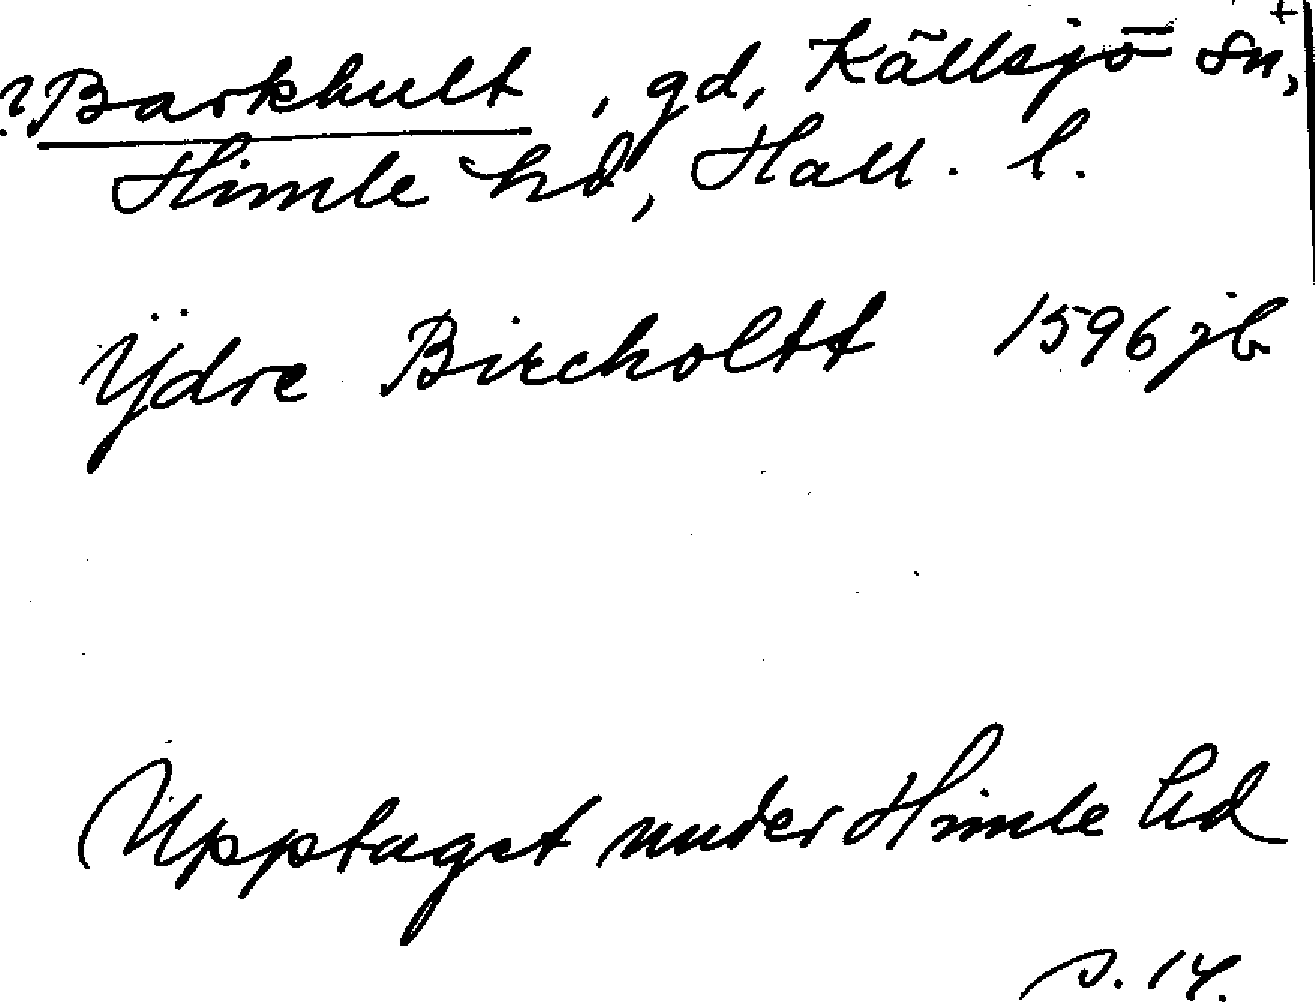 ? Barkhult, gd, Källsjö sn,
Himle hd, Hall. l.
Ydre Bircholtt 1596 jb
Upptaget under Himle hd
s. 14.